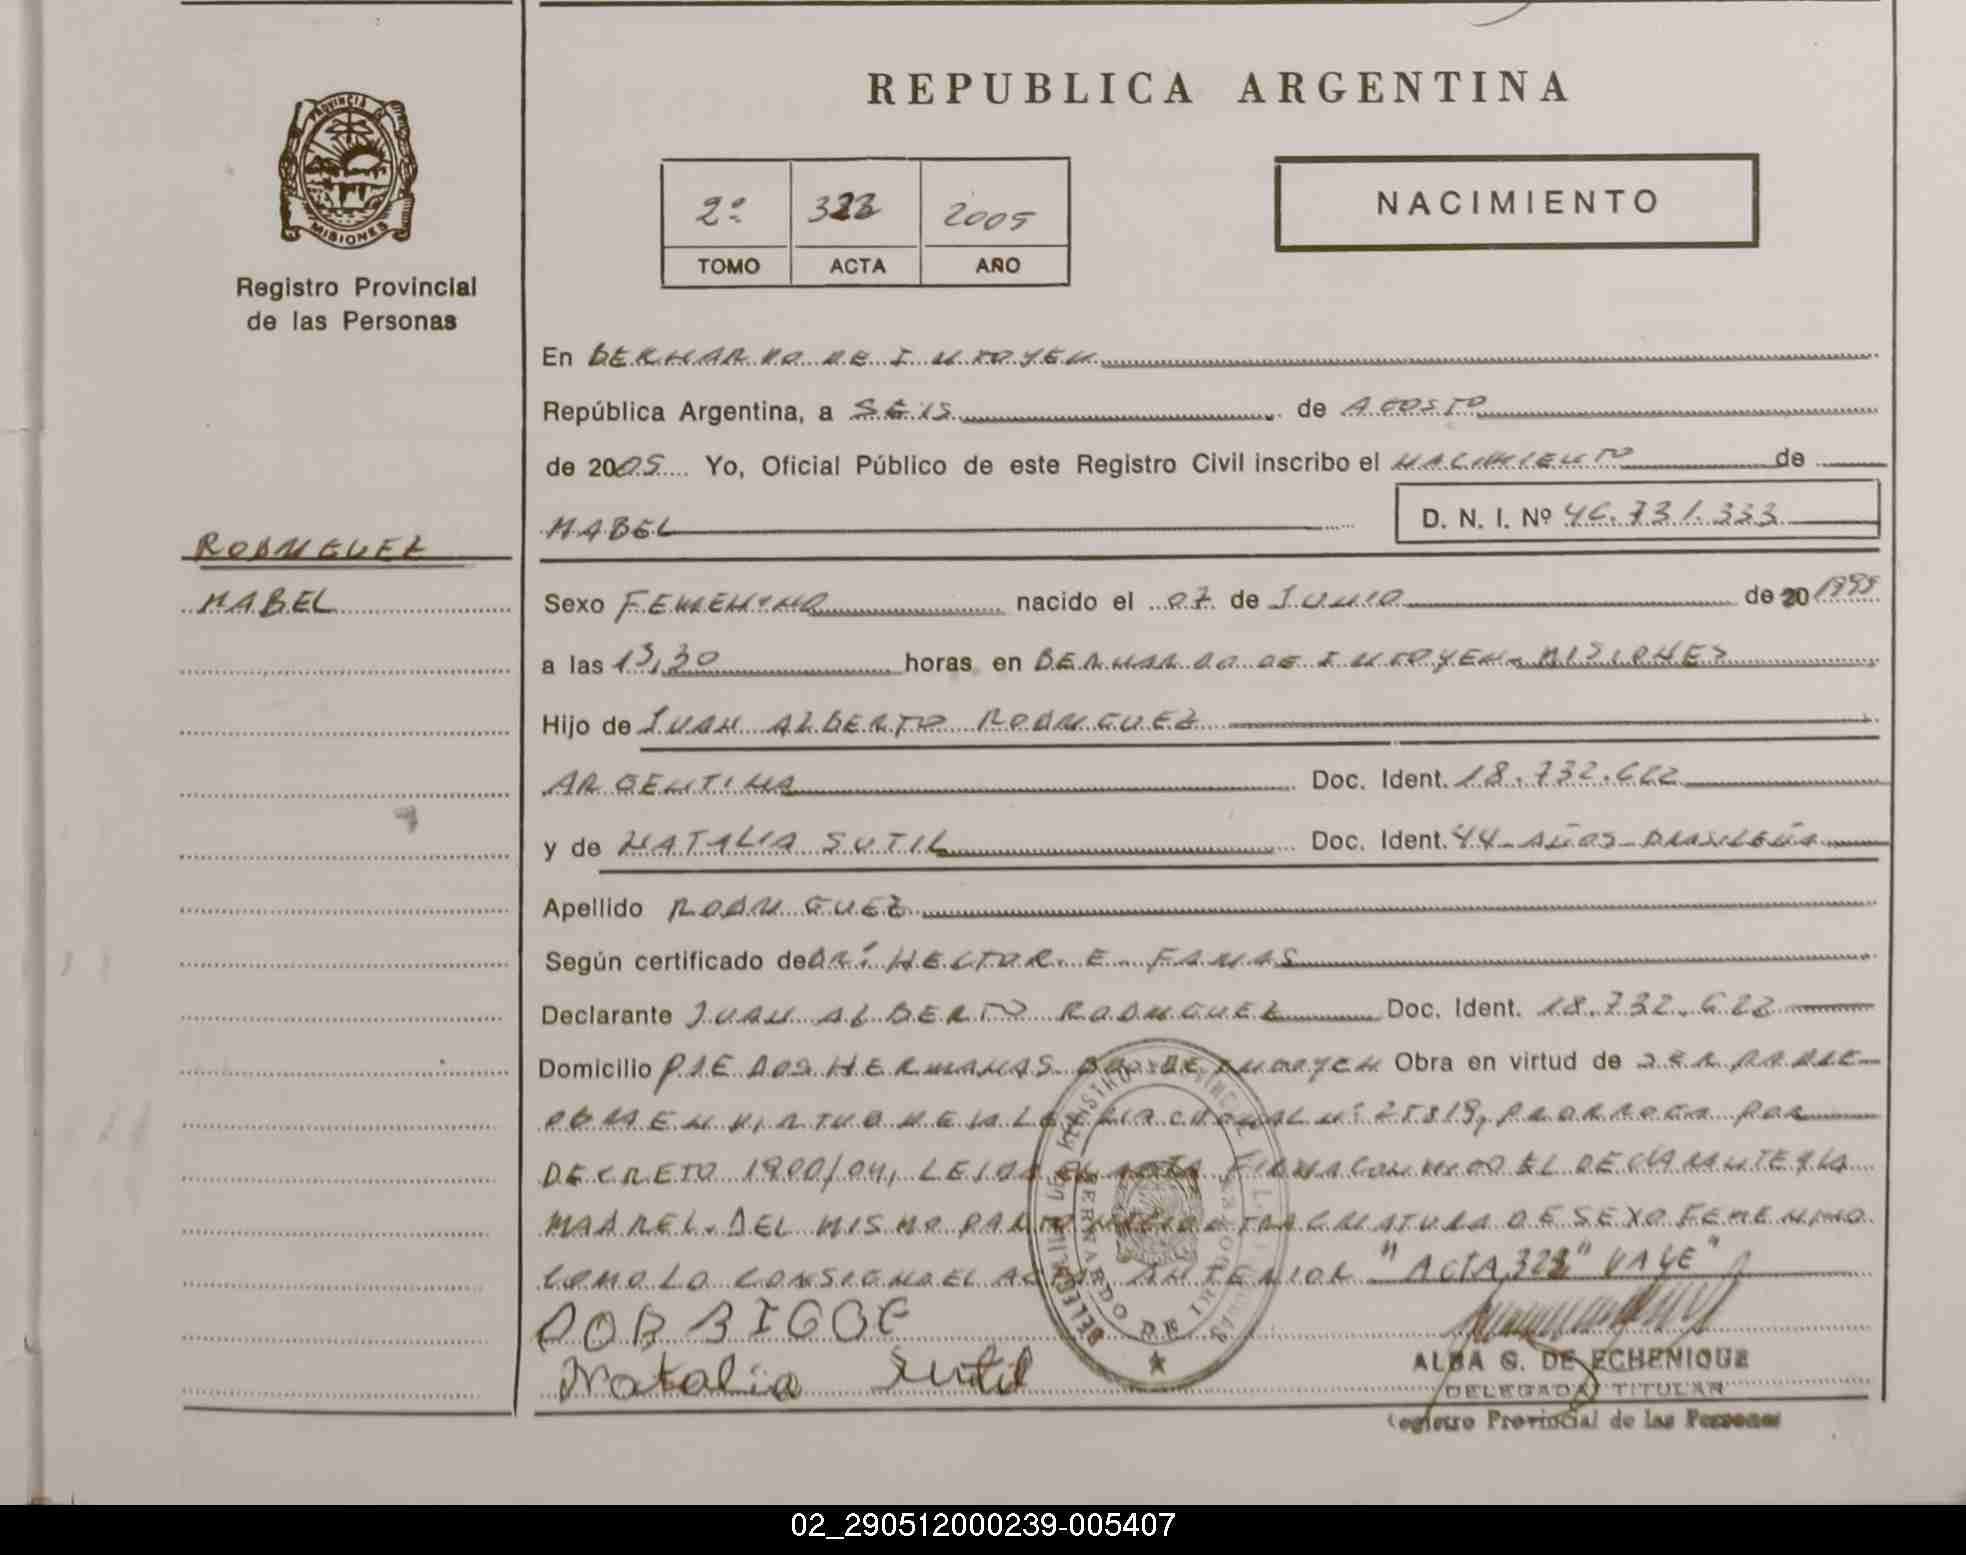 REPUBLICA ARGENTINA
PROVINCIA DE
MISIONES
Registro Provincial
de las Personas
2º 2005
TOMO ACTA AÑO
NACIMIENTO
En BERNARDO DE IRIGOYEN
República Argentina, a SEIS de AGOSTO
de 2005 Yo, Oficial Público de este Registro Civil inscribo el NACIMIENTO de
MABEL D. N. I. Nº 46.731.333
RODRIGUEZ
MABEL
Sexo FEMENINO nacido el 07 de JUNIO de 20 1999
a las 13,30 horas en BERNARDO DE IRIGOYEN - MISIONES
Hijo de JUAN ALBERTO RODRIGUEZ
ARGENTINA Doc. Ident. 18.732.622
y de NATALIA SUTIL Doc. Ident. 44 - AÑOS - BRASILEÑA
Apellido RODRIGUEZ
Según certificado de DR. HECTOR E. FARIAS
Declarante JUAN ALBERTO RODRIGUEZ Doc. Ident. 18.732.622
Domicilio PJE DOS HERMANAS BDO DE IRIGOYEN Obra en virtud de SER PADRE
OBRA EN VIRTUD DE LA LEY NACIONAL Nº 25819, PRORROGA POR
DECRETO 1900/04, LEIDA EL ACTA FIRMA CONMIGO EL DECLARANTE Y LA
MADRE. DEL MISMO PARTO NACIO OTRA CRIATURA DE SEXO FEMENINO
COMO LO CONSIGNO EL ACTA ANTERIOR "ACTA 323" VALE"
Natalia Sutil
ALBA G. DE ECHENIQUE
DELEGADA TITULAR
Registro Provincial de las Personas
02_290512000239-005407